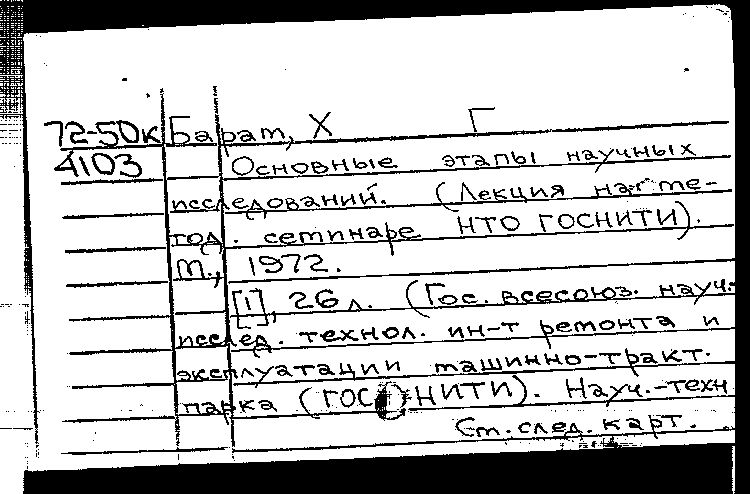 72-50к Барат, Х Г
4103 Основные этапы научных
исследований. (Лекция на те-
год. сетинаре НТО ГОСНИТИ).
т., 1972.
[1], 26 л. (Гос. всесоюз. науч.-
исслед. технол. ин-т ремонта и
эксплуатации машинно-тракт.
парка (ГОСНИТИ). Науч.-техн
Ст. след. карт.